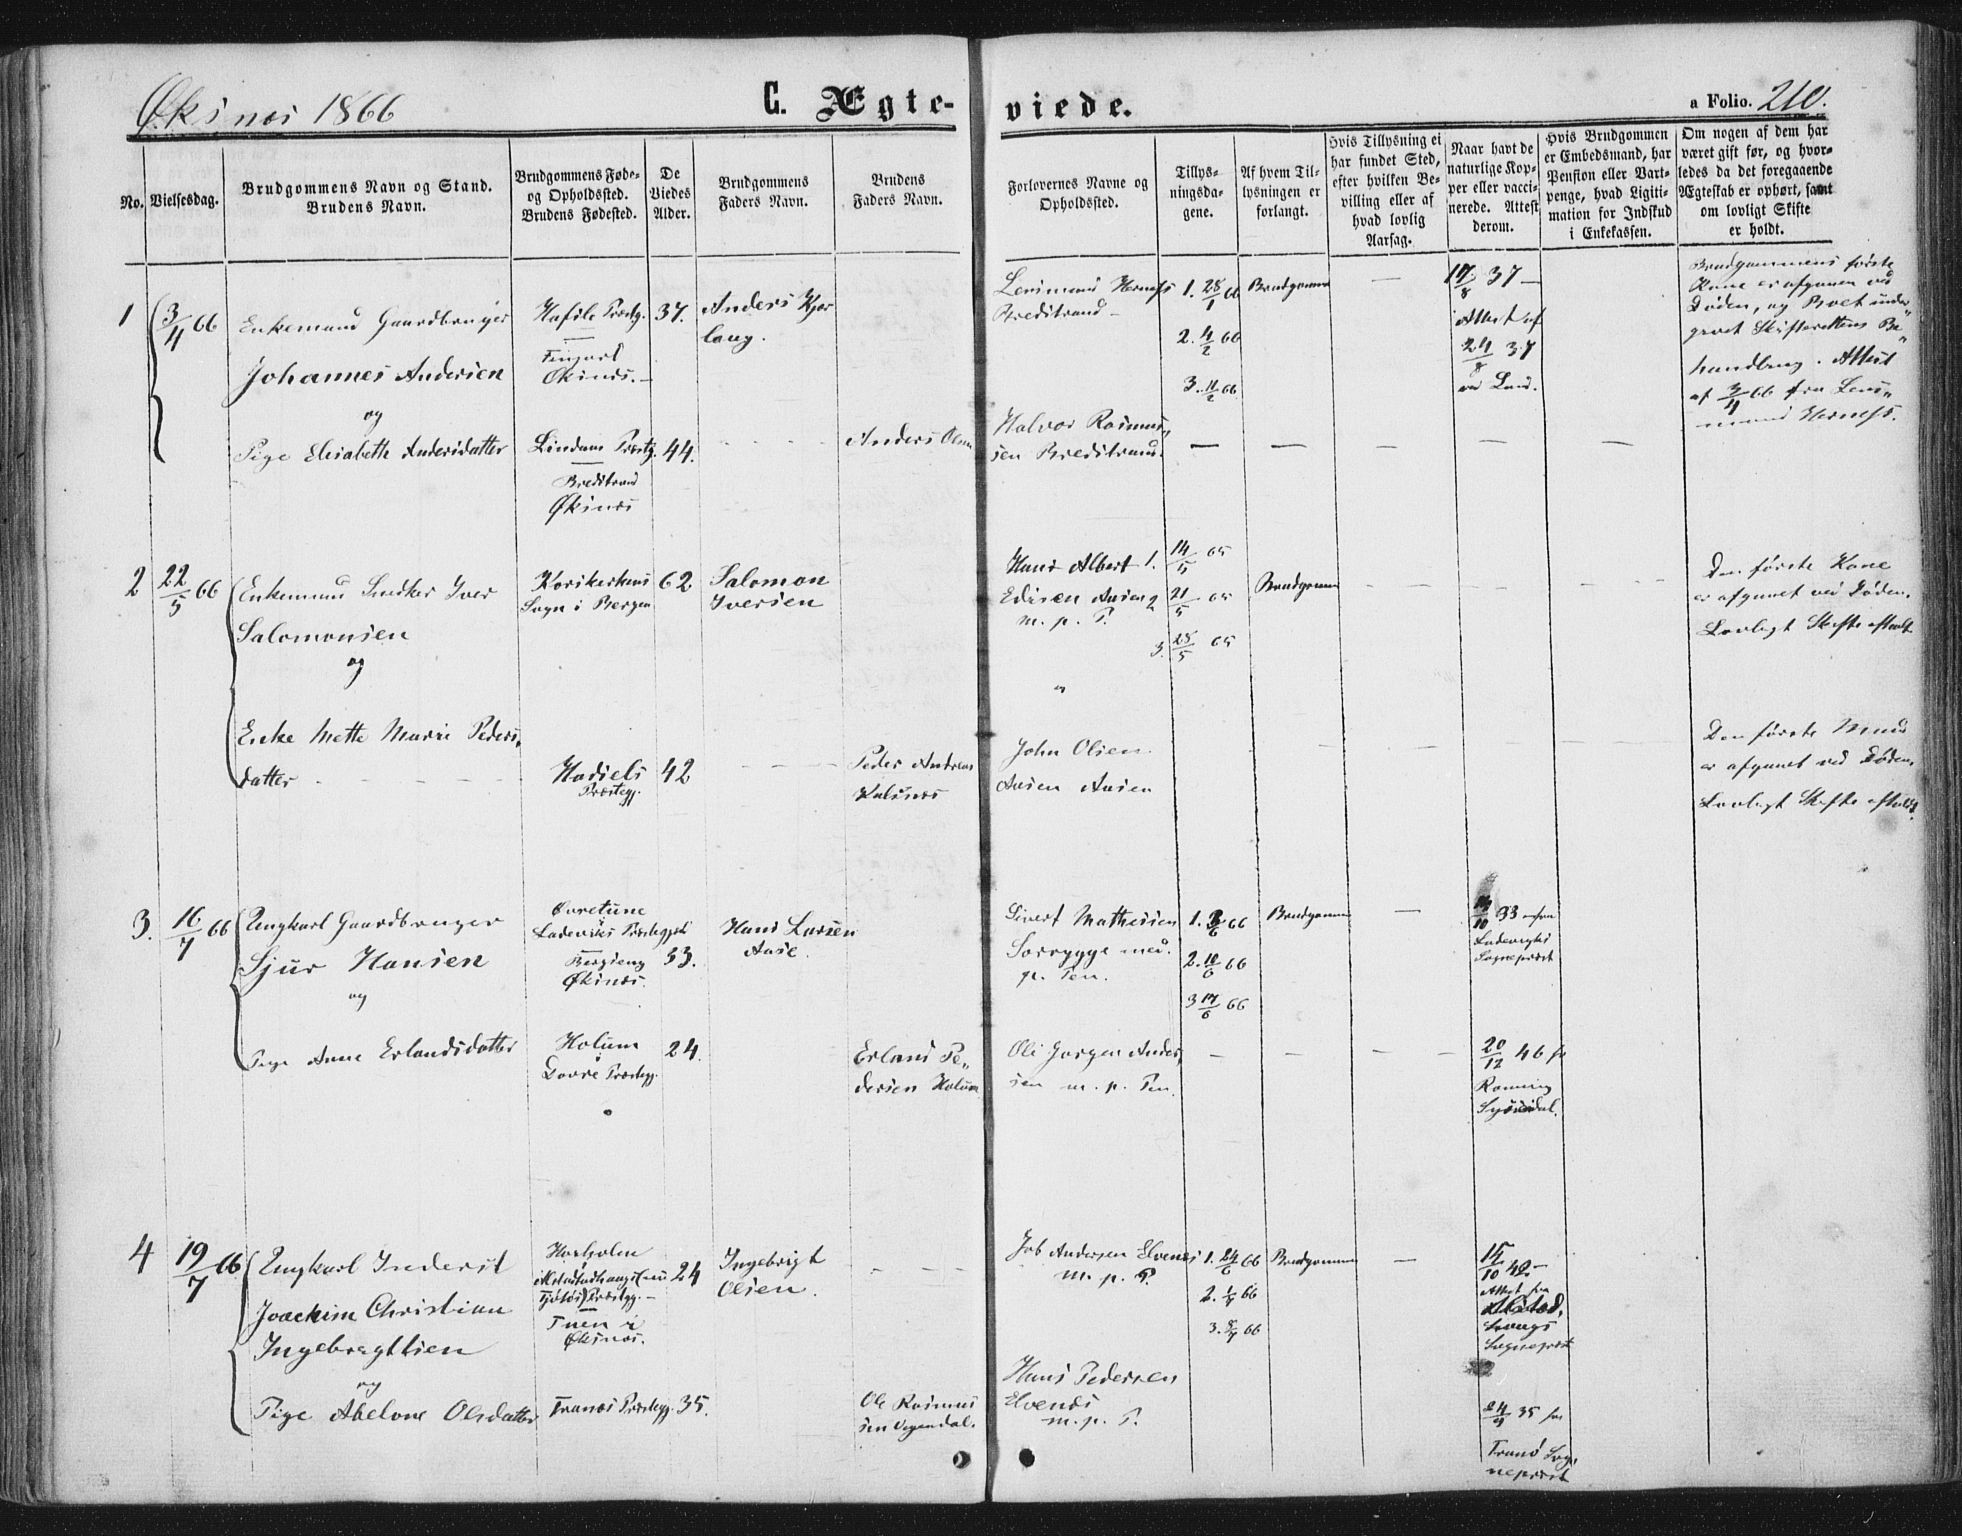 Øksnes 1866
C. Ægte-
viede.
a Folio. 210.
No.
Vielsesdag.
Brudgommens Navn og Stand.
Brudens Navn.
Brudgommens Føde-
og Opholdssted.
Brudens Fødested.
De
Viedes
Alder.
Brudgommens
Faders Navn.
Brudens
Faders Navn.
Forlovernes Navne og
Opholdssted.
Tillys-
ningsda-
gene.
Af hvem Til-
lysningen er
forlangt.
Hvis Tillysning ei
har fundet Sted,
efter hvilken Be-
villing eller af
hvad lovlig
Aarsag.
Naar havt de
naturlige Kop-
per eller vacci-
nerede. Attest
derom.
Hvis Brudgommen
er Embedsmand, har
Pension eller Vart-
penge, hvad Ligiti-
mation for Indskud
i Enkekassen.
Om nogen af dem har
været gift før, og hvor-
ledes da det foregaaende
Ægteskab er ophørt, samt
om lovligt Skifte
er holdt.
1
3/4 66
Enkemand Gaardbruger
Johannes Andersen
og
Pige Elisabeth Andersdatter
Hafslo Præstg.
Øksnes.
37.
Anders
Lindaas Præstg.
Bredstrand
Øksnes
44.
Anders Olsen
Lensmand Hernæss
Bredstrand
Halvor Rasmus„
sen Bredstrand.
1. 28/1 66
2. 4/2 66
3. 11/2 66
Brudgommen
17/8 37
Attest af
24/8 37
Brudgommens første
Kone er afgaaen ved
Døden, og Boet under„
givet Skifterettens Be„
handling. Attest
af 3/4 66 fra Lens„
mand Hernæss.
2
22/5 66
Enkemand Snedker Iver
Salomonsen
og
Enke Mette Marie Peders„
datter
Korskirkens
Sogn i Bergen
62
Salomon
Iversen
Hadsels
Præstegj.
42
Peder Andreas
Hans Albert
Edisen Aasen
m. p. P.
John Olsen
Aasen Aasen
1. 14/5 65
2 21/5 65
3. 28/5 65
Brudgommen
Den første Kone
er afgaaet ved Døden.
Lovligt Skifte afholdt
Den første Mand
er afgaaet ved Døden.
Lovligt Skifte afholdt.
3.
16/7 66
Ungkarl Gaardbruger
Sjur Hansen
og
Pige Anne Erlandsdatter
Øksnes.
33.
Hans Larsen
Aase.
Holum
i
Dovre Præstegj.
24.
Erland Pe„
dersen Holum
Sivert Mathesen
med
p. Pen.
Ole Jørgen Ander„
sen m. p. Pen.
1. 3/6 66
2. 10/6 66
3 17/6 66
Brudgommen
33
Sognepræst
20/12 46 fra
4
19/7 66
Ungkarl Inderst
Joachim Christian
Ingebrigtsen
og
Pige Abelone Olsdatter
Tjøtøi Præstegj.
Tuen i
Øksnes.
24
Ingebrigt
Olsen.
Tranøs Præstegj.
35.
Ole Rasmus
sen
Job Andersen Elvenes
m. p. P.
Hans Pedersen
Elvenes
m. p. P.
1. 24/6 66
2. 1/7 66
3. 8/7 66
Brudgommen
15/10 42
Attest fra
Alstad„
haugs
Sognepræst
24/9 35 fra
Tranø Sog„
nepræst